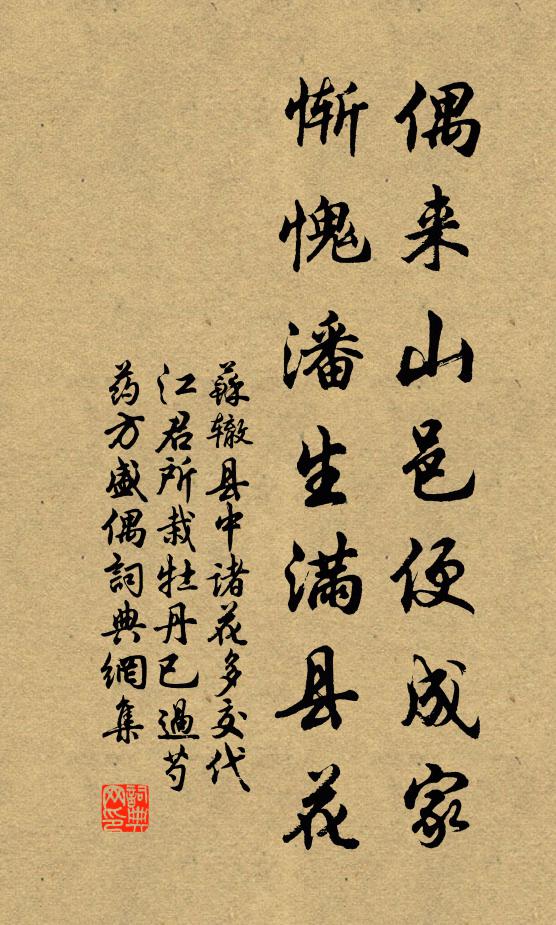 偶来山邑便成家
惭愧潘生满县花
蘇辙县中诸花多交代
江君所栽牡丹已過芍
药方盛偶詞典網集
詞典
网印